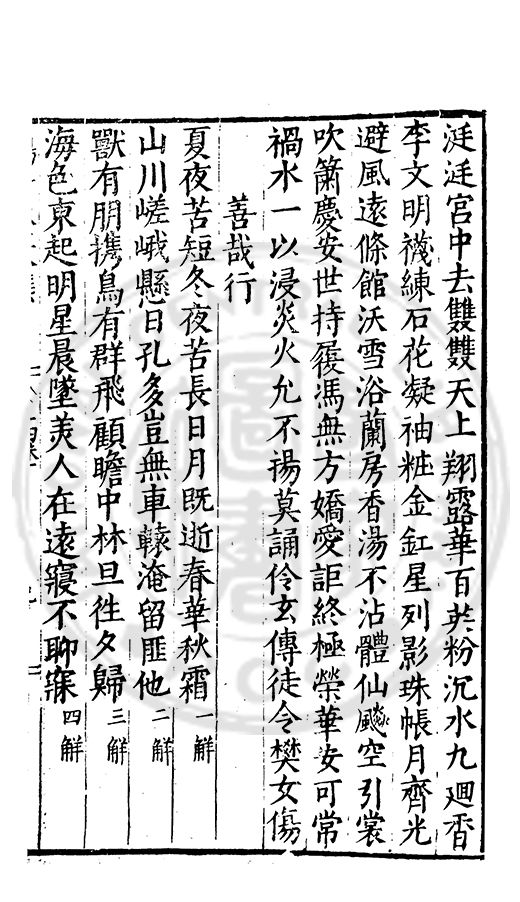 涏涏宮中去雙雙天上翔露華百英粉沉水九迴香
李文明襪練石花凝袖粧金釭星列影珠帳月齊光
避風遠條館沃雪浴蘭房香湯不沾體仙飇空引裳
吹簫慶安世持履馮無方嬌愛詎終極榮華安可常
禍水一以浸炎火允不揚莫誦伶玄傳徒令樊女傷
善哉行
夏夜苦短冬夜苦長日月既逝春華秋霜一解
山川嵯峨懸日孔多豈無車轅淹留匪他二解
獸有朋擕鳥有群飛顧瞻中林旦徃夕歸三解
海色東起明星晨墜美人在遠寢不聊寐四解